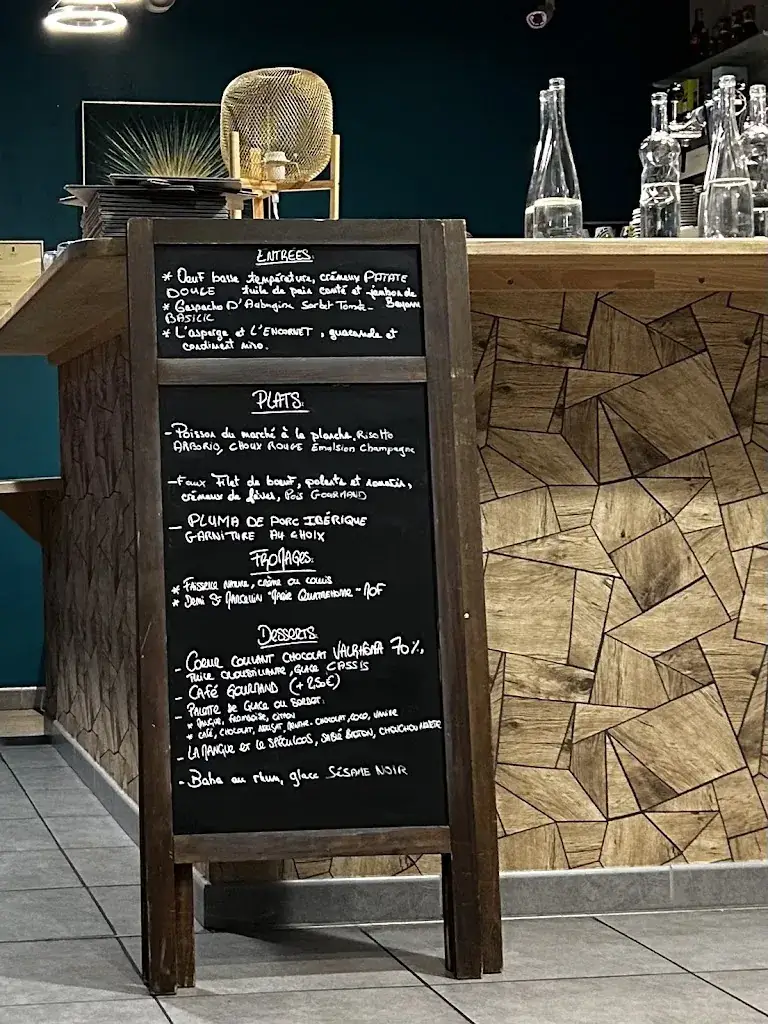 ENTREES:
* Oeuf basse température, crémeux PATATE
DOUCE tuile de pain comté et jambon de
Bayonne
* Gaspacho D'Aubergine Sorbet Tomate-
BASILIC
* L'asperge et L'ENCORNET, guacamole et
condiment miso.
PLATS:
- Poisson du marché à la plancha, Risotto
ARBORIO, CHOUX ROUGE Emulsion Champagne
- Faux Filet de bœuf, polenta et romarin,
crémeux de fèves, Pois GOURMAND
- PLUMA DE PORC IBÉRIQUE
GARNITURE AU CHOIX
FROMAGES:
* FAISSELLE NATURE, crème ou coulis
* Demi St MARCELLIN "MARIE QUATREHOME" MOF
Desserts:
- COEUR COULANT CHOCOLAT VALRHONA 70%,
TUILE CROUSTILLANTE, GLACE CASSIS
- CAFÉ GOURMAND (+2,50€)
- PALETTE DE GLACE OU SORBET:
* MANGUE, FRAMBOISE, CITRON
* CAFÉ, CHOCOLAT, MENTHE-CHOCOLAT, COCO, VANILLE
- LA MANGUE ET LE SPÉCULOOS, SABLÉ BRETON, CHOUCHOU
- Baba au rhum, glace SÉSAME NOIR